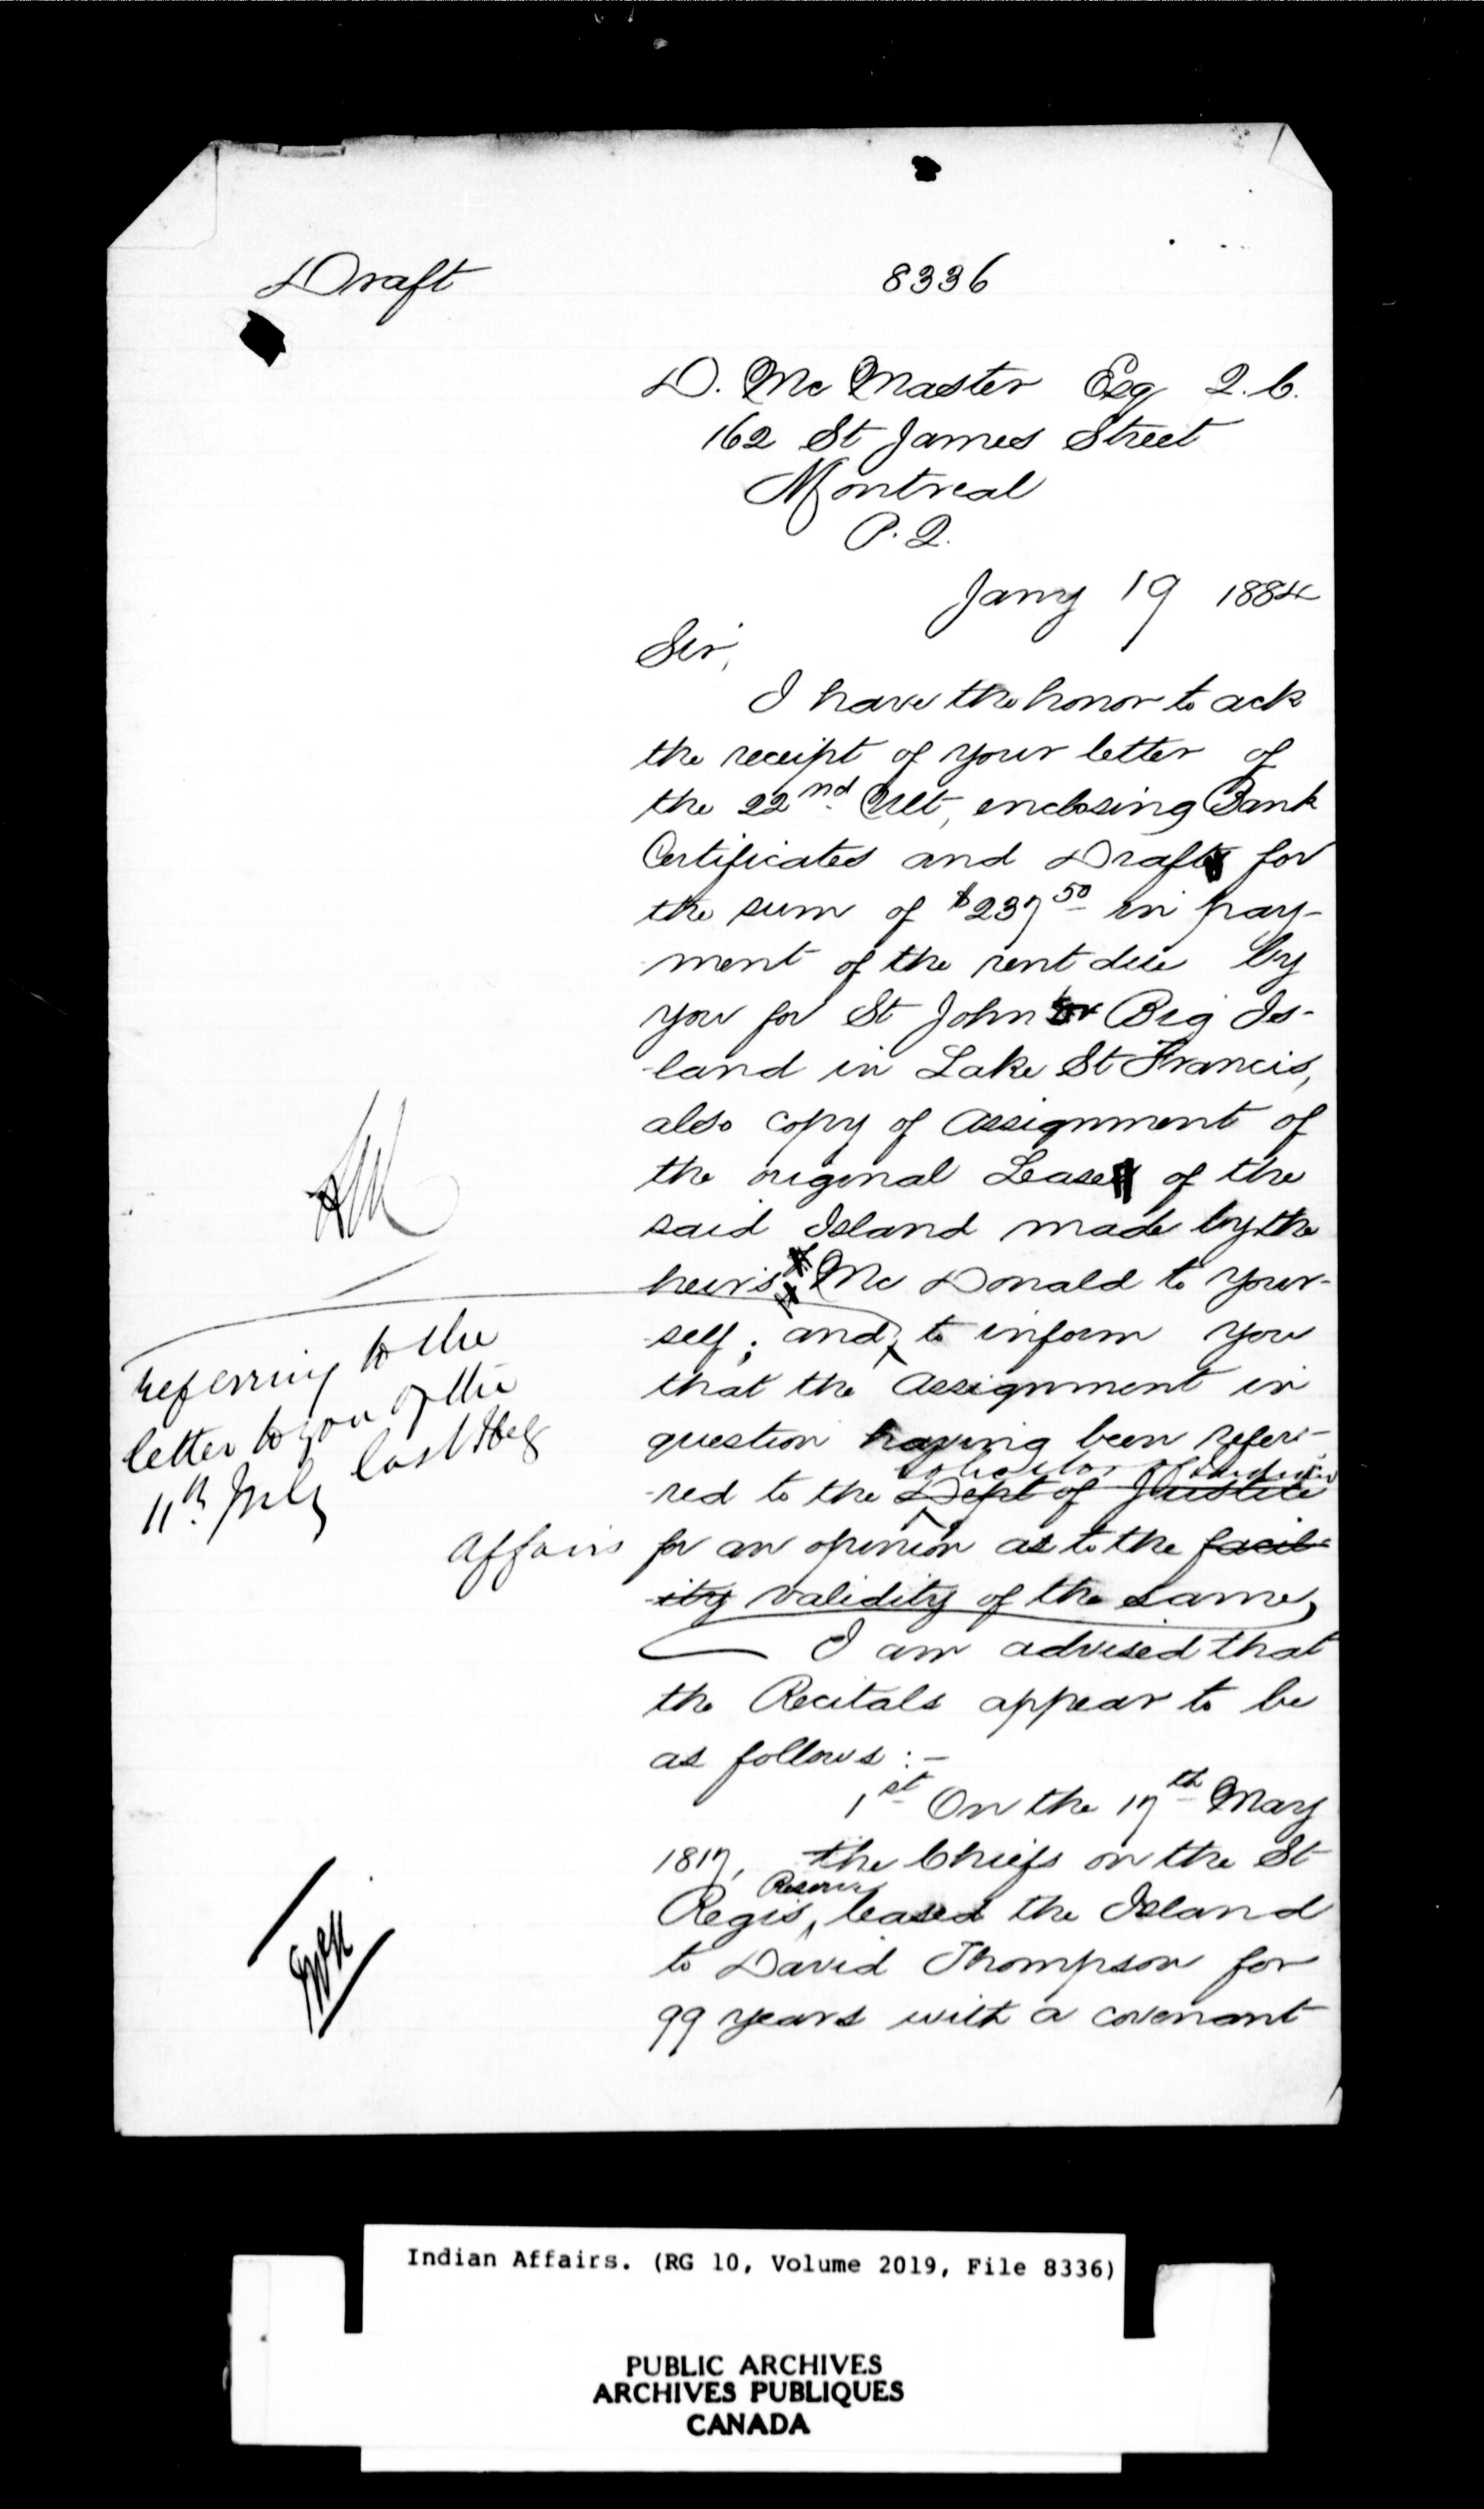 Draft
8336
D. McMaster Esq Q.C.
162 St James Street
Montreal
P.Q.
Jany 19 1884
Sir,
I have the honor to ack
the receipt of your letter of
the 22nd Ult, enclosing Bank
Certificates and Draft for
the sum of $237 50 in pay-
ment of the rent due by
you for St John or Big Is-
-land in Lake St Francis,
also copy of Assignment of
the original Lease of the
said Island made by the
heirs Mc Donald to your-
self; and to inform you
referring to the
letter to you of the
11th July last
that the Assignment in
question having been refer-
-red to the Dept of Justice
Solicitor of Indian
Affairs
for an opinion as to the facil-
-ity validity of the same,
I am advised that
the Recitals appear to be
as follows :-
1st On the 17th May
1817, the Chiefs on the St
Regis Reserve leased the Island
to David Thompson for
99 years with a covenant
Indian Affairs. (RG 10, Volume 2019, File 8336)
PUBLIC ARCHIVES
ARCHIVES PUBLIQUES
CANADA